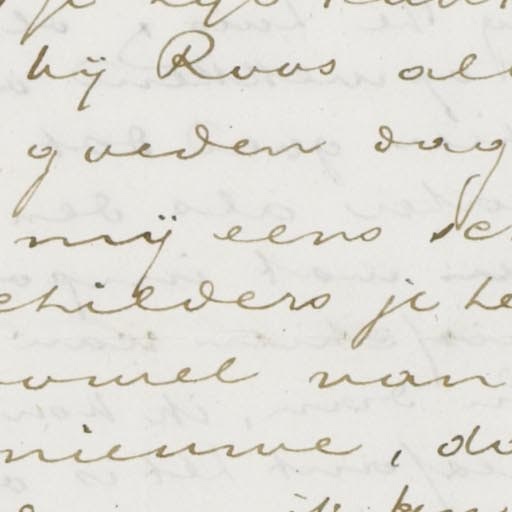 hij Roos al
goeden dag
mij eens sc
childers je he
owel van
nieuwe, da